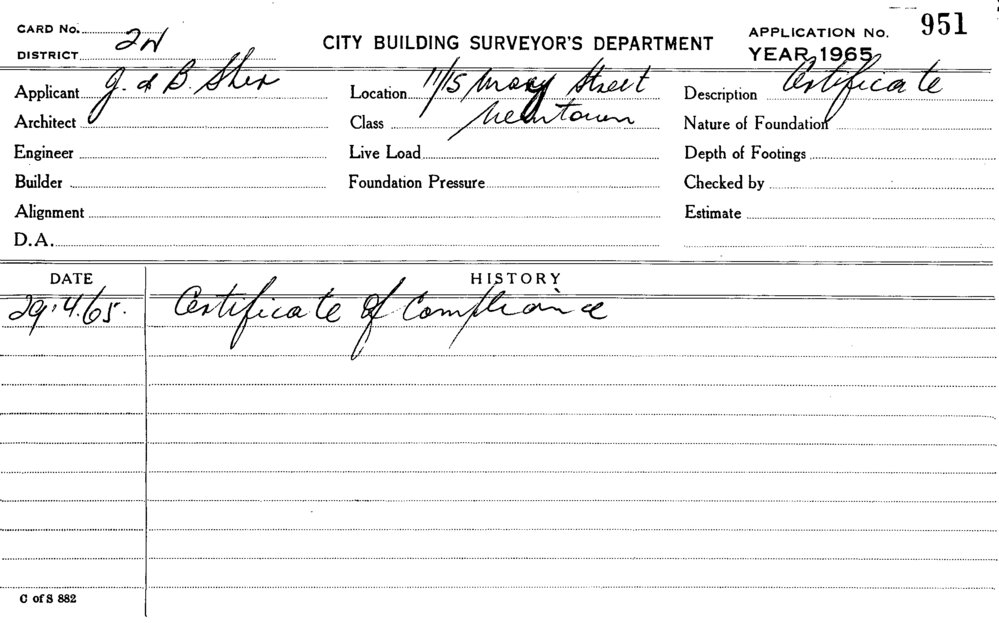 CARD No.
DISTRICT 2N
CITY BUILDING SURVEYOR'S DEPARTMENT
APPLICATION No. 951
YEAR 1965
Applicant J. & B. Sher
Location 11/15 Mary Street
Description Certificate
Architect
Class Newtown
Nature of Foundation
Engineer
Live Load
Depth of Footings
Builder
Foundation Pressure
Checked by
Alignment
Estimate
D.A.
DATE HISTORY
29.4.65. Certificate of Compliance
C of S 882